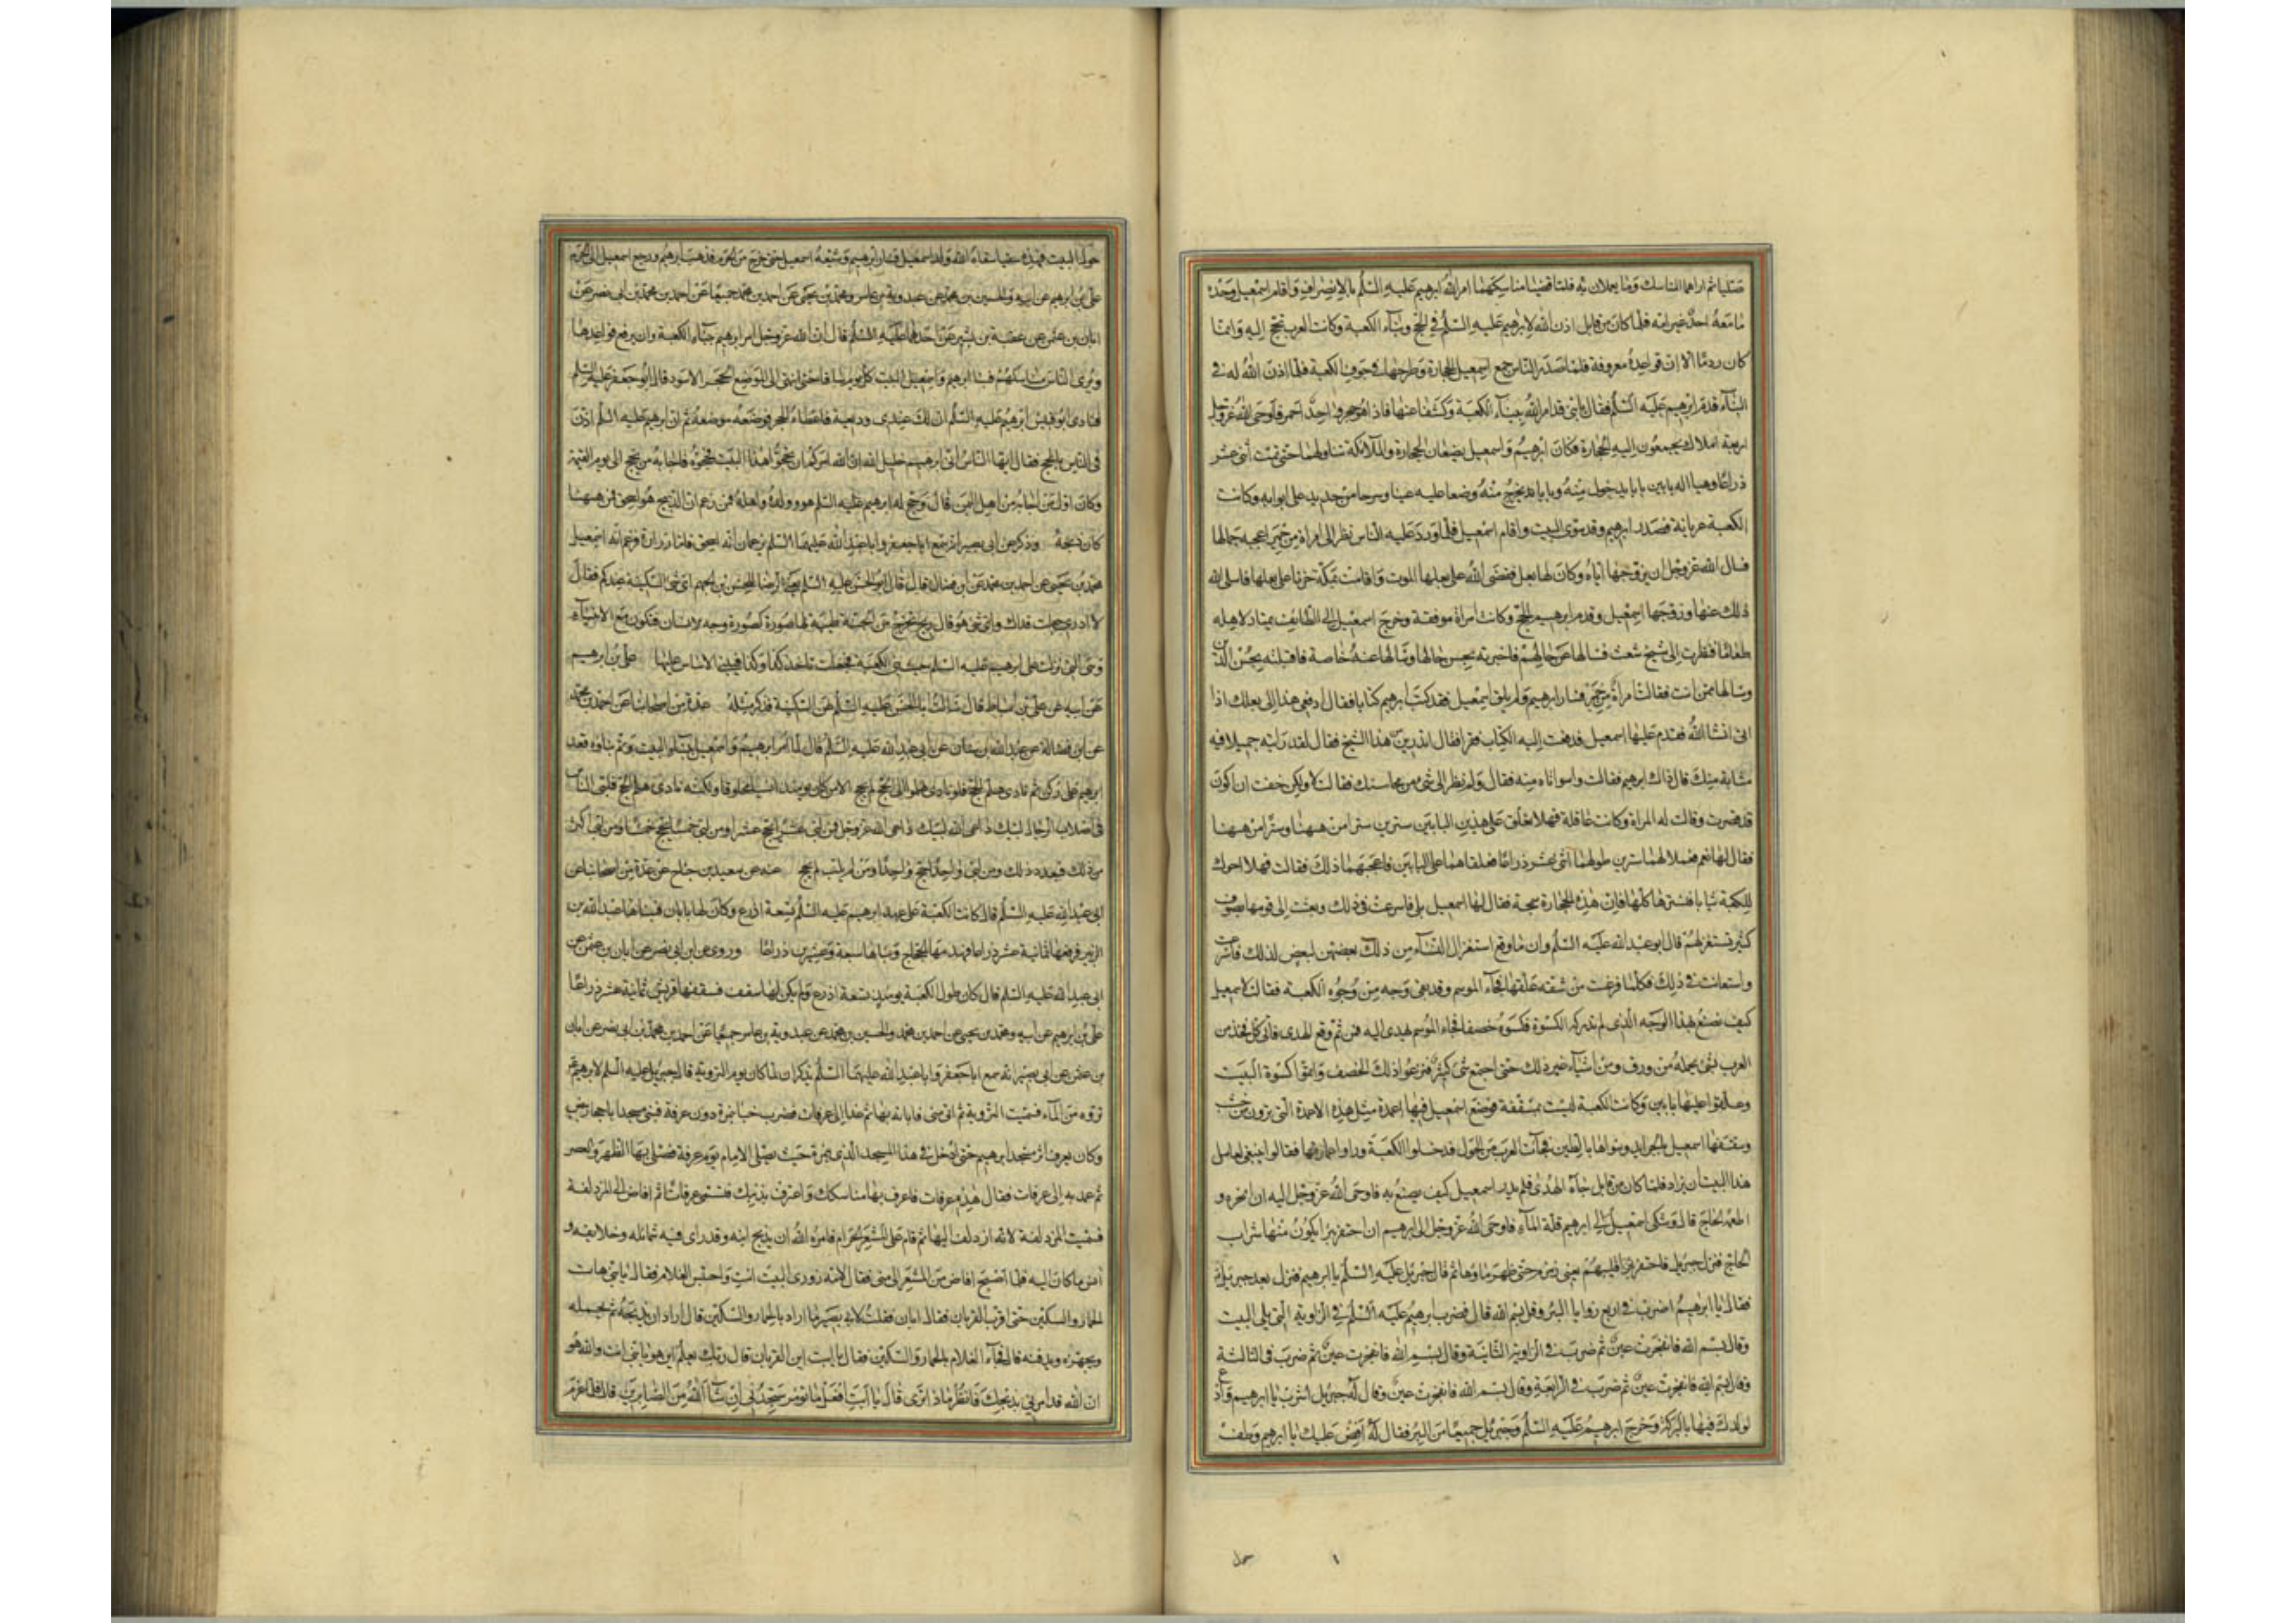 صليا ثم اراهما المناسك وما يعملان به فلما قضيا مناسكهما امر الله ابرهيم عليه السلم بالانصراف واقام اسمعيل وحده
ما معه احد غير امه فلما كان من قابل اذن الله لابرهيم عليه السلم في الحج وبناء الكعبة وكانت العرب تحج اليه وانما
كان ردما الا ان قواعده معروفة فلما صدر الناس جمع اسمعيل الحجارة وطرحها في جوف الكعبة فلما اذن الله له في
البناء قدم ابرهيم عليه السلم فقال يا بني قد امر الله ببناء الكعبة وكشفا عنها فاذا هو حجر واحد احمر فاوحى الله عز وجل
اربعة املاك يجمعون اليه الحجارة فكان ابرهيم واسمعيل يضعان الحجارة والملائكة تناولهما حتى تمت اثنى عشر
ذراعا وهيا له بابين بابا يدخل منه وبابا يخرج منه ووضعا عليه عتبا وسرحا من حديد على ابوابه وكانت
الكعبة عريانة فصدر ابرهيم وقد سوى البيت واقام اسمعيل فلما ورد عليه الناس نظر الى امراة من حمير اعجبه جمالها
فسال الله عز وجل ان يزوجها اياه وكان لها بعل فقضى الله على بعلها الموت واقامت بمكة حزنا على بعلها فاسلى الله
ذلك عنها وزوجها اسمعيل وقدم ابرهيم الحج وكانت امراة موفقة وخرج اسمعيل الى الطائف يمتار لاهله
طعاما فنظرت الى شيخ شعث فسالها عن حالهم فاخبرته بحسن حالها وسالها عنه خاصة فاخبرته بحسن الدين
وسالها ممن انت فقالت امراة من حمير فسار ابرهيم ولم يلق اسمعيل وقد كتب ابرهيم كتابا فقال ادفعي هذا الى بعلك اذا
اتى انشا الله فقدم عليها اسمعيل فدفعت اليه الكتاب فقرا فقال اتدرين من هذا الشيخ فقال لقد رايته جميلا فيه
مشابه منك قال ذاك ابرهيم فقالت واسواتاه منه فقال ولم نظر الى شيء من محاسنك فقالت لا ولكن خفت ان اكون
قد قصرت وقالت له المراة وكانت عاقلة فهلا تعلق على هذين البابين سترين سترا من ههنا وسترا من ههنا
فقال لها نعم فعملا لهما سترين طولهما اثنى عشر ذراعا فعلقاهما على البابين فاعجبهما ذلك فقالت فهلا احوك
للكعبة ثيابا فتسترها كلها فان هذه الحجارة سمجة فقال لها اسمعيل بلى فاسرعت في ذلك وبعثت الى قومها بصوف
كثير تستغزلهم قال ابو عبد الله عليه السلم وانما وقع استغزال النساء من ذلك بعضهن لبعض لذلك فاسرعت
واستعانت في ذلك فكلما فرغت من شقة علقتها فجاء الموسم وقد بقي وجه من وجوه الكعبة فقالت لاسمعيل
كيف نصنع بهذا الوجه الذي لم تدركه الكسوة فكسوه خصفا فجاء الموسم
العرب بشيء يحمله من ورق ومن اشياء غير ذلك حتى اجتمع شيء كثير فنزعوا ذلك الخصف واتموا كسوة البيت
وعلقوا عليها بابين وكانت الكعبة ليست بمسقفة فوضع اسمعيل فيها اعمدة مثل هذه الاعمدة التي ترون من خشب
وسقفها اسمعيل بالجرايد وسواها بالطين فجاءت العرب من الحول فدخلوا الكعبة وراوا عمارتها فقالوا ينبغي لعامل
هذا البيت ان يزاد فلما كان من قابل جاءه الهدى فلم يدر اسمعيل كيف يصنع به فاوحى الله عز وجل اليه ان انحره و
اطعمه الحاج قال وشكى اسمعيل الى ابرهيم قلة الماء فاوحى الله عز وجل الى ابرهيم ان احتفر بئرا يكون منها شراب
الحاج فنزل جبرئيل فاحتفر قليبهم يعني زمزم حتى ظهر ماؤها ثم قال جبرئيل عليه السلم يا ابرهيم فنزل بعد جبرئيل
فقال يا ابرهيم اضرب في اربع زوايا البئر وقل بسم الله قال فضرب ابرهيم عليه السلم في الزاوية التي تلي البيت
وقال بسم الله فانفجرت عين ثم ضرب في الزاوية الثانية وقال بسم الله فانفجرت عين ثم ضرب في الثالثة
وقال بسم الله فانفجرت عين ثم ضرب في الرابعة وقال بسم الله فانفجرت عين وقال له جبرئيل اشرب يا ابرهيم وادع
لولدك فيها بالبركة وخرج ابرهيم عليه السلم وجبرئيل جميعا من البئر فقال له افض عليك يا ابرهيم وطف
حول البيت فهذه سقيا سقاها الله ولد اسمعيل فسار ابرهيم وشيعه اسمعيل حتى خرج من الحرم فذهب ابرهيم ورجع اسمعيل الى الحرم
علي بن ابرهيم عن ابيه والحسين بن محمد عن عبدويه بن عامر ومحمد بن يحيى عن احمد بن محمد جميعا عن احمد بن محمد بن ابي نصر عن
ابان بن عثمن عن عقبة بن بشير عن احدهما عليه السلم قال ان الله عز وجل امر ابرهيم ببناء الكعبة وان يرفع قواعدها
ويرى الناس مناسكهم فبنا ابرهيم واسمعيل البيت كل يوم سافا حتى انتهى الى موضع الحجر الاسود قال ابو جعفر عليه السلم
فنادى ابو قبيس ابرهيم عليه السلم ان لك عندي وديعة فاعطاه الحجر فوضعه موضعه ثم ان ابرهيم عليه السلم اذن
في الناس بالحج فقال ايها الناس اني ابرهيم خليل الله ان الله امركم ان تحجوا هذا البيت فحجوه فاجابه من يحج الى يوم القيمة
وكان اول من اجابه من اهل اليمن قال وحج له ابرهيم عليه السلم هو وولده واهله فمن زعم ان الذبيح هو اسحق فمن ههنا
كان ذبحه وذكر عن ابي بصير انه سمع ابا جعفر وابا عبد الله عليهما السلم يزعمان انه اسحق فاما زرارة فزعم انه اسمعيل
محمد بن يحيى عن احمد بن محمد عن ابن فضال قال قال ابو الحسن عليه السلم يعني الرضا للحسن بن الجهم اي شيء السكينة عندكم فقال
لا ادري جعلت فداك واي شيء هو قال ريح تخرج من الجنة طيبة لها صورة كصورة وجه الانسان فتكون مع الانبياء
وهي التي نزلت على ابرهيم عليه السلم حيث بنى الكعبة فجعلت تاخذ كذا وكذا فبنى الاساس عليها علي بن ابرهيم
عن ابيه عن علي بن اسباط قال سالت ابا الحسن عليه السلم عن السكينة فذكر مثله عدة من اصحابنا عن احمد بن محمد
عن ابن فضال عن عبد الله بن سنان عن ابي عبد الله عليه السلم قال لما امر ابرهيم واسمعيل ببناء البيت وتم بناؤه قعد
ابرهيم على ركن ثم نادى هلم الحج فلو نادى هلموا الى الحج لم يحج الا من كان يومئذ انسيا مخلوقا ولكنه نادى هلم الحج فلبى الناس
في اصلاب الرجال لبيك داعي الله لبيك داعي الله عز وجل فمن لبى عشرا يحج عشرا ومن لبى خمسا يحج خمسا ومن لبى اكثر
من ذلك فبعدد ذلك ومن لبى واحدا حج واحدا ومن لم يلب لم يحج عنه عن سعيد بن جناح عن عدة من اصحابنا عن
ابي عبد الله عليه السلم قال كانت الكعبة على عهد ابرهيم عليه السلم تسعة اذرع وكان لها بابان فبناها عبد الله بن
الزبير فرفعها ثمانية عشر ذراعا فهدمها الحجاج وبناها سبعة وعشرين ذراعا وروى عن ابن ابي نصر عن ابان بن عثمن عن
ابي عبد الله عليه السلم قال كان طول الكعبة يومئذ تسعة اذرع ولم يكن لها سقف فسقفها قريش ثمانية عشر ذراعا
علي بن ابرهيم عن ابيه ومحمد بن يحيى عن احمد بن محمد والحسين بن محمد عن عبدويه بن عامر جميعا عن احمد بن محمد بن ابي نصر عن ابان
بن عثمن عن ابي بصير انه سمع ابا جعفر وابا عبد الله عليهما السلم يذكران لما كان يوم التروية قال جبرئيل عليه السلم لابرهيم
تروه من الماء فسميت التروية ثم اتى منى فاباته بها ثم غدا الى عرفات فضرب خباه بنمرة دون عرفة فبنى مسجدا باحجار بيض
وكان يعرف اثر مسجد ابرهيم حتى ادخل في هذا المسجد الذي بنمرة حيث يصلي الامام يوم عرفة فصلى بها الظهر والعصر
ثم عمد به الى عرفات فقال هذه عرفات فاعرف بها مناسكك واعترف بذنبك فسمي عرفات ثم افاض الى المزدلفة
فسميت المزدلفة لانه ازدلف اليها ثم قام على المشعر الحرام فامره الله ان يذبح ابنه وقد راى فيه شمائله وخلائقه و
انس ما كان اليه فلما اصبح افاض من المشعر الى منى فقال لامه زوري البيت انت واحتبس الغلام فقال يا بني هات
الحمار والسكين حتى اقرب القربان فقال ابان فقلت لابي بصير ما اراد بالحمار والسكين قال اراد ان يذبحه ثم يحمله
ويجهزه ويدفنه قال فجاء الغلام بالحمار والسكين فقال يا ابت اين القربان قال ربك يعلم اين هو يا بني انت والله هو
ان الله قد امرني بذبحك فانظر ماذا ترى قال يا ابت افعل ما تؤمر ستجدني ان شاء الله من الصابرين قال فلما عزم